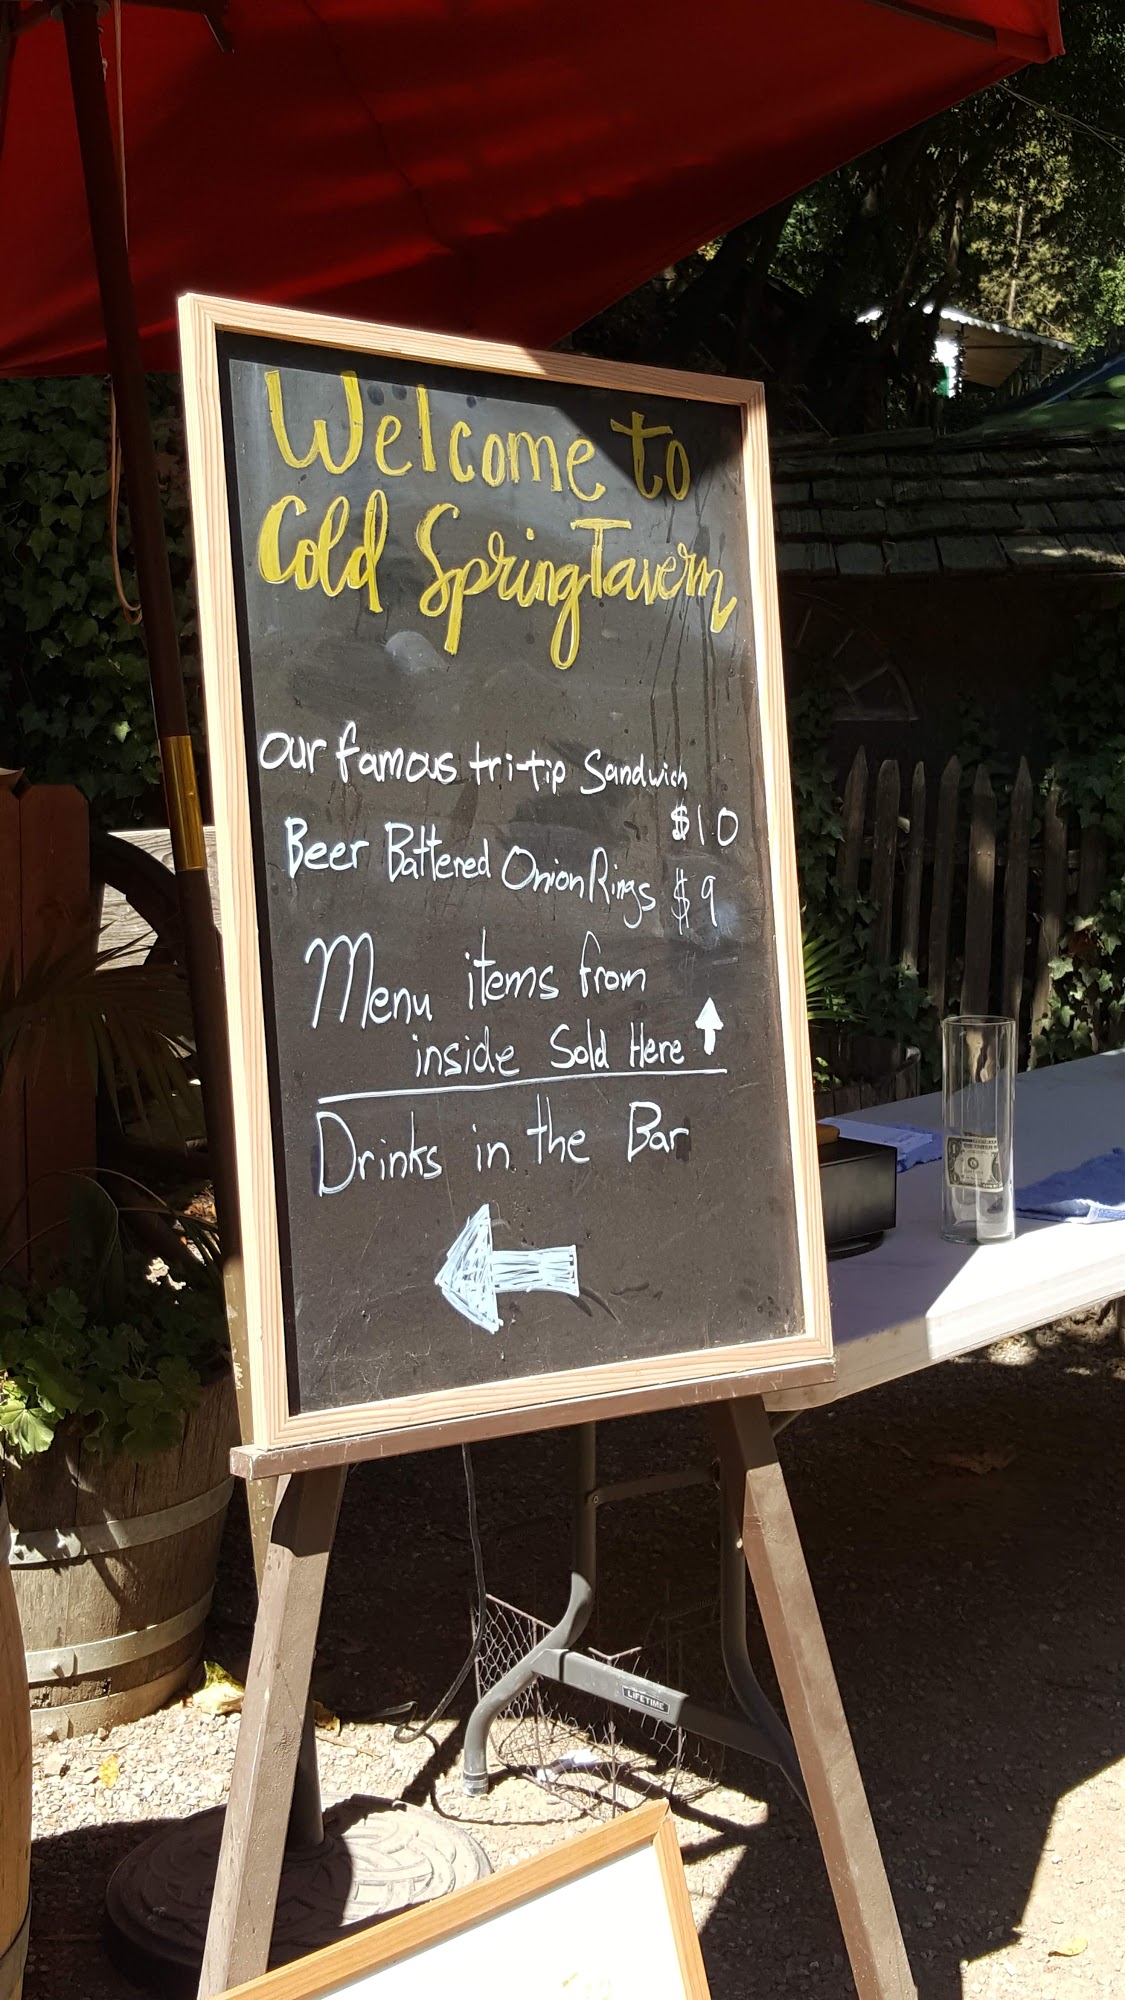 Welcome to
Cold Spring Tavern
Our famous tri-tip Sandwich
$10
Beer Battered Onion Rings $9
Menu items from
inside Sold Here
Drinks in the Bar
LIFETIME